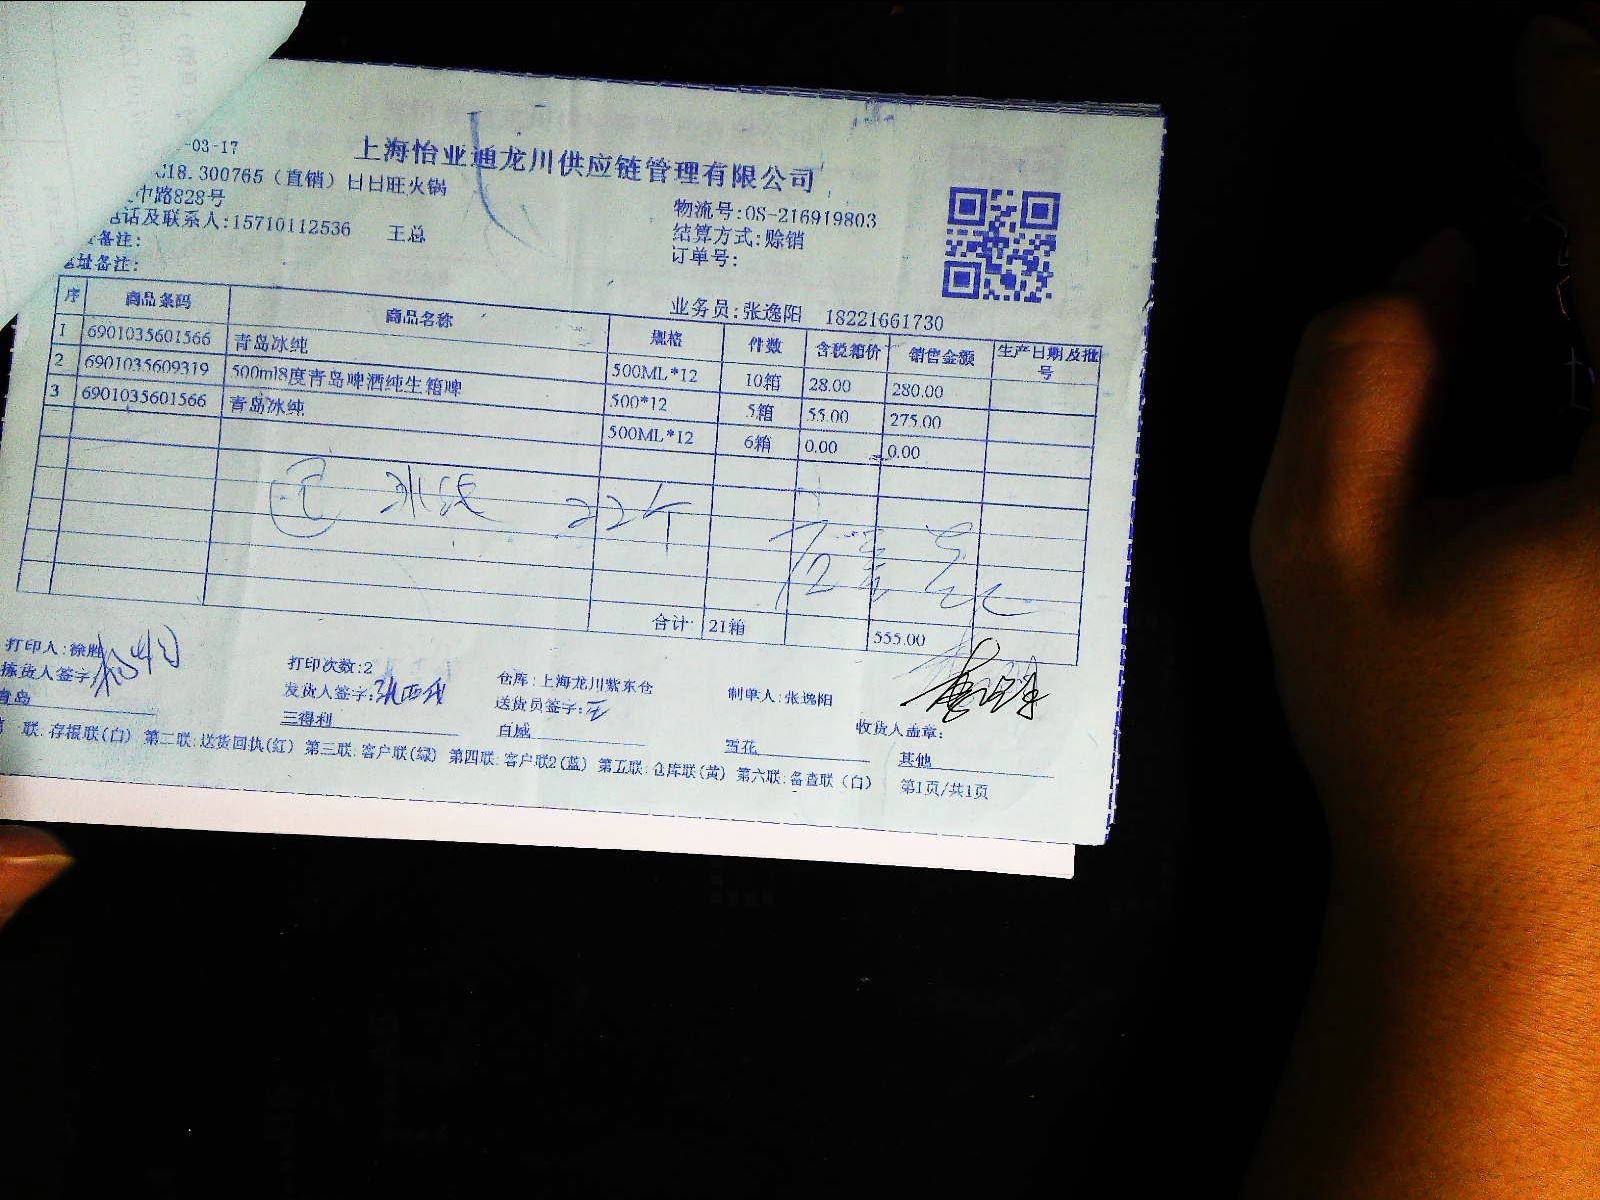 -03-17
上海怡亚通龙川供应链管理有限公司
18.300765（直销）日日旺火锅
中路828号
电话及联系人:15710112536 王总
备注:
地址备注:
物流号:OS-216919803
结算方式:赊销
订单号:
业务员:张逸阳 18221661730
序 商品条码 商品名称 规格 件数 含税箱价 销售金额 生产日期及批号
1 6901035601566 青岛冰纯 500ML*12 10箱 28.00 280.00
2 6901035609319 500ml8度青岛啤酒纯生箱啤 500*12 5箱 55.00 275.00
3 6901035601566 青岛冰纯 500ML*12 6箱 0.00 0.00
冰纯 22个
合计 21箱 555.00
打印人:徐胜 打印次数:2 仓库:上海龙川紫东仓 制单人:张逸阳
拣货人签字: 发货人签字: 送货员签字:王 收货人盖章:
青岛 三得利 百威 雪花 其他
联:存根联(白) 第二联:送货回执(红) 第三联:客户联(绿) 第四联:客户联2(蓝) 第五联:仓库联(黄) 第六联:备查联（白） 第1页/共1页